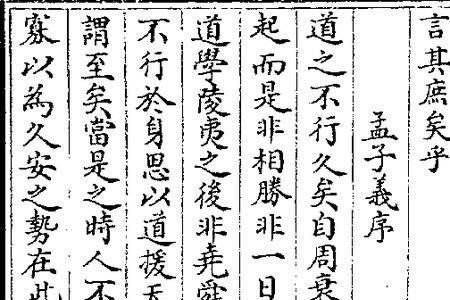 言其庶矣乎
孟子義序
道之不行久矣自周衰
起而是非相勝非一日
道學陵夷之後非堯舜
不行於身思以道援天
謂至矣當是之時人不
寡以為久安之勢在此